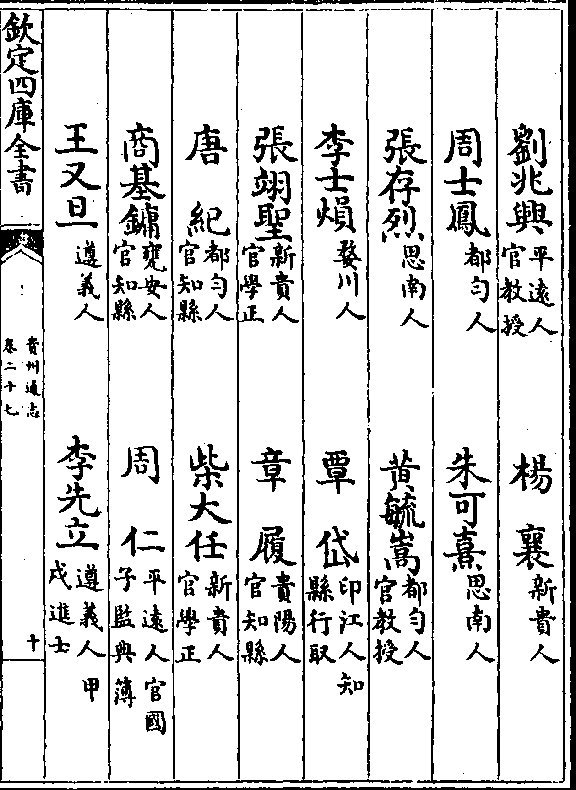 劉兆興平遠人官教授 楊襄新貴人
周士鳳都勻人 朱可熹思南人
張存烈思南人 黄毓嵩都勻人官教授
李士熉婺川人 覃岱印江人知縣行取
張翊聖新貴人官學正 章履貴陽人官知縣
唐紀都勻人官知縣 柴大任新貴人官學正
商基鏞甕安人官知縣 周仁平遠人官國子監典簿
王又旦遵義人 李先立遵義人甲戌進士
欽定四庫全書
貴州通志
卷二十七
十